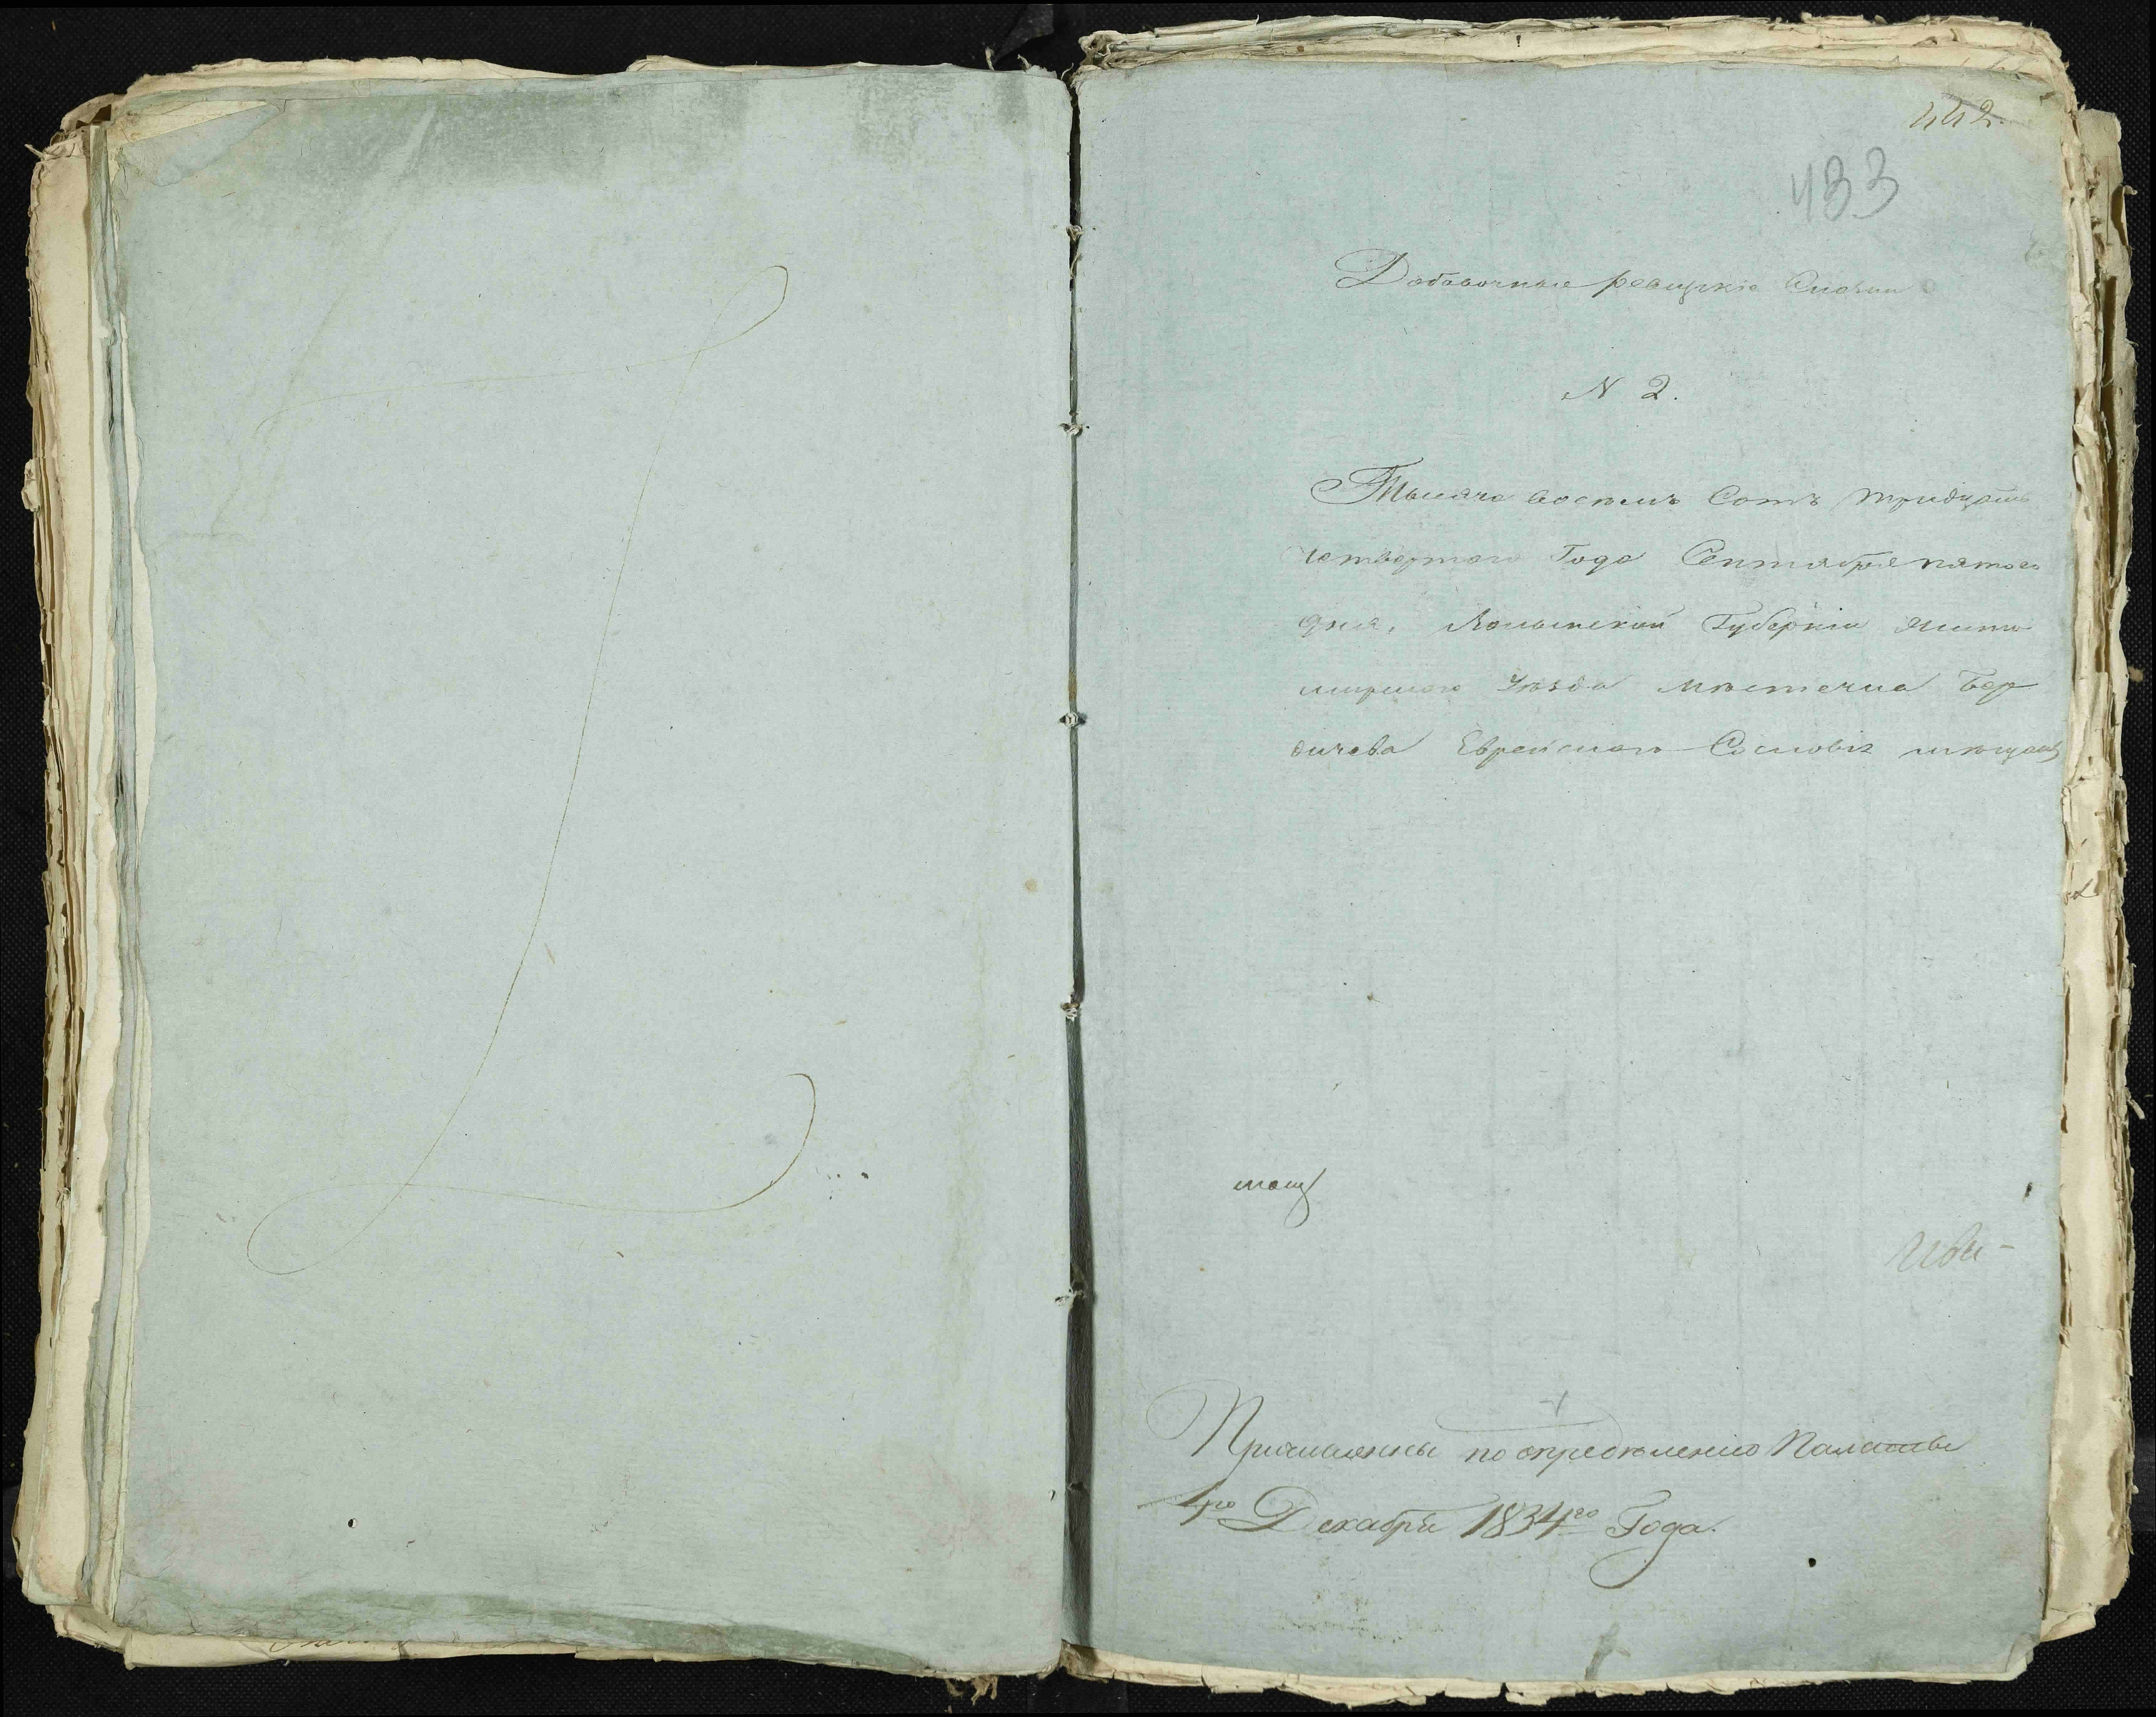 442.
433
Добавочныя ревизкіе Сказки
N 2.
Тысяча восемь Сотъ тридцать
четвертого Года Сентября пятого
дня, Волынской Губерніи Жито
мирского Уѣзда мѣстечка Бер
дичева Еврейского Сословія мѣщанъ
Причисленны по опредѣленію Палаты
4го Декабря 1834го Года.